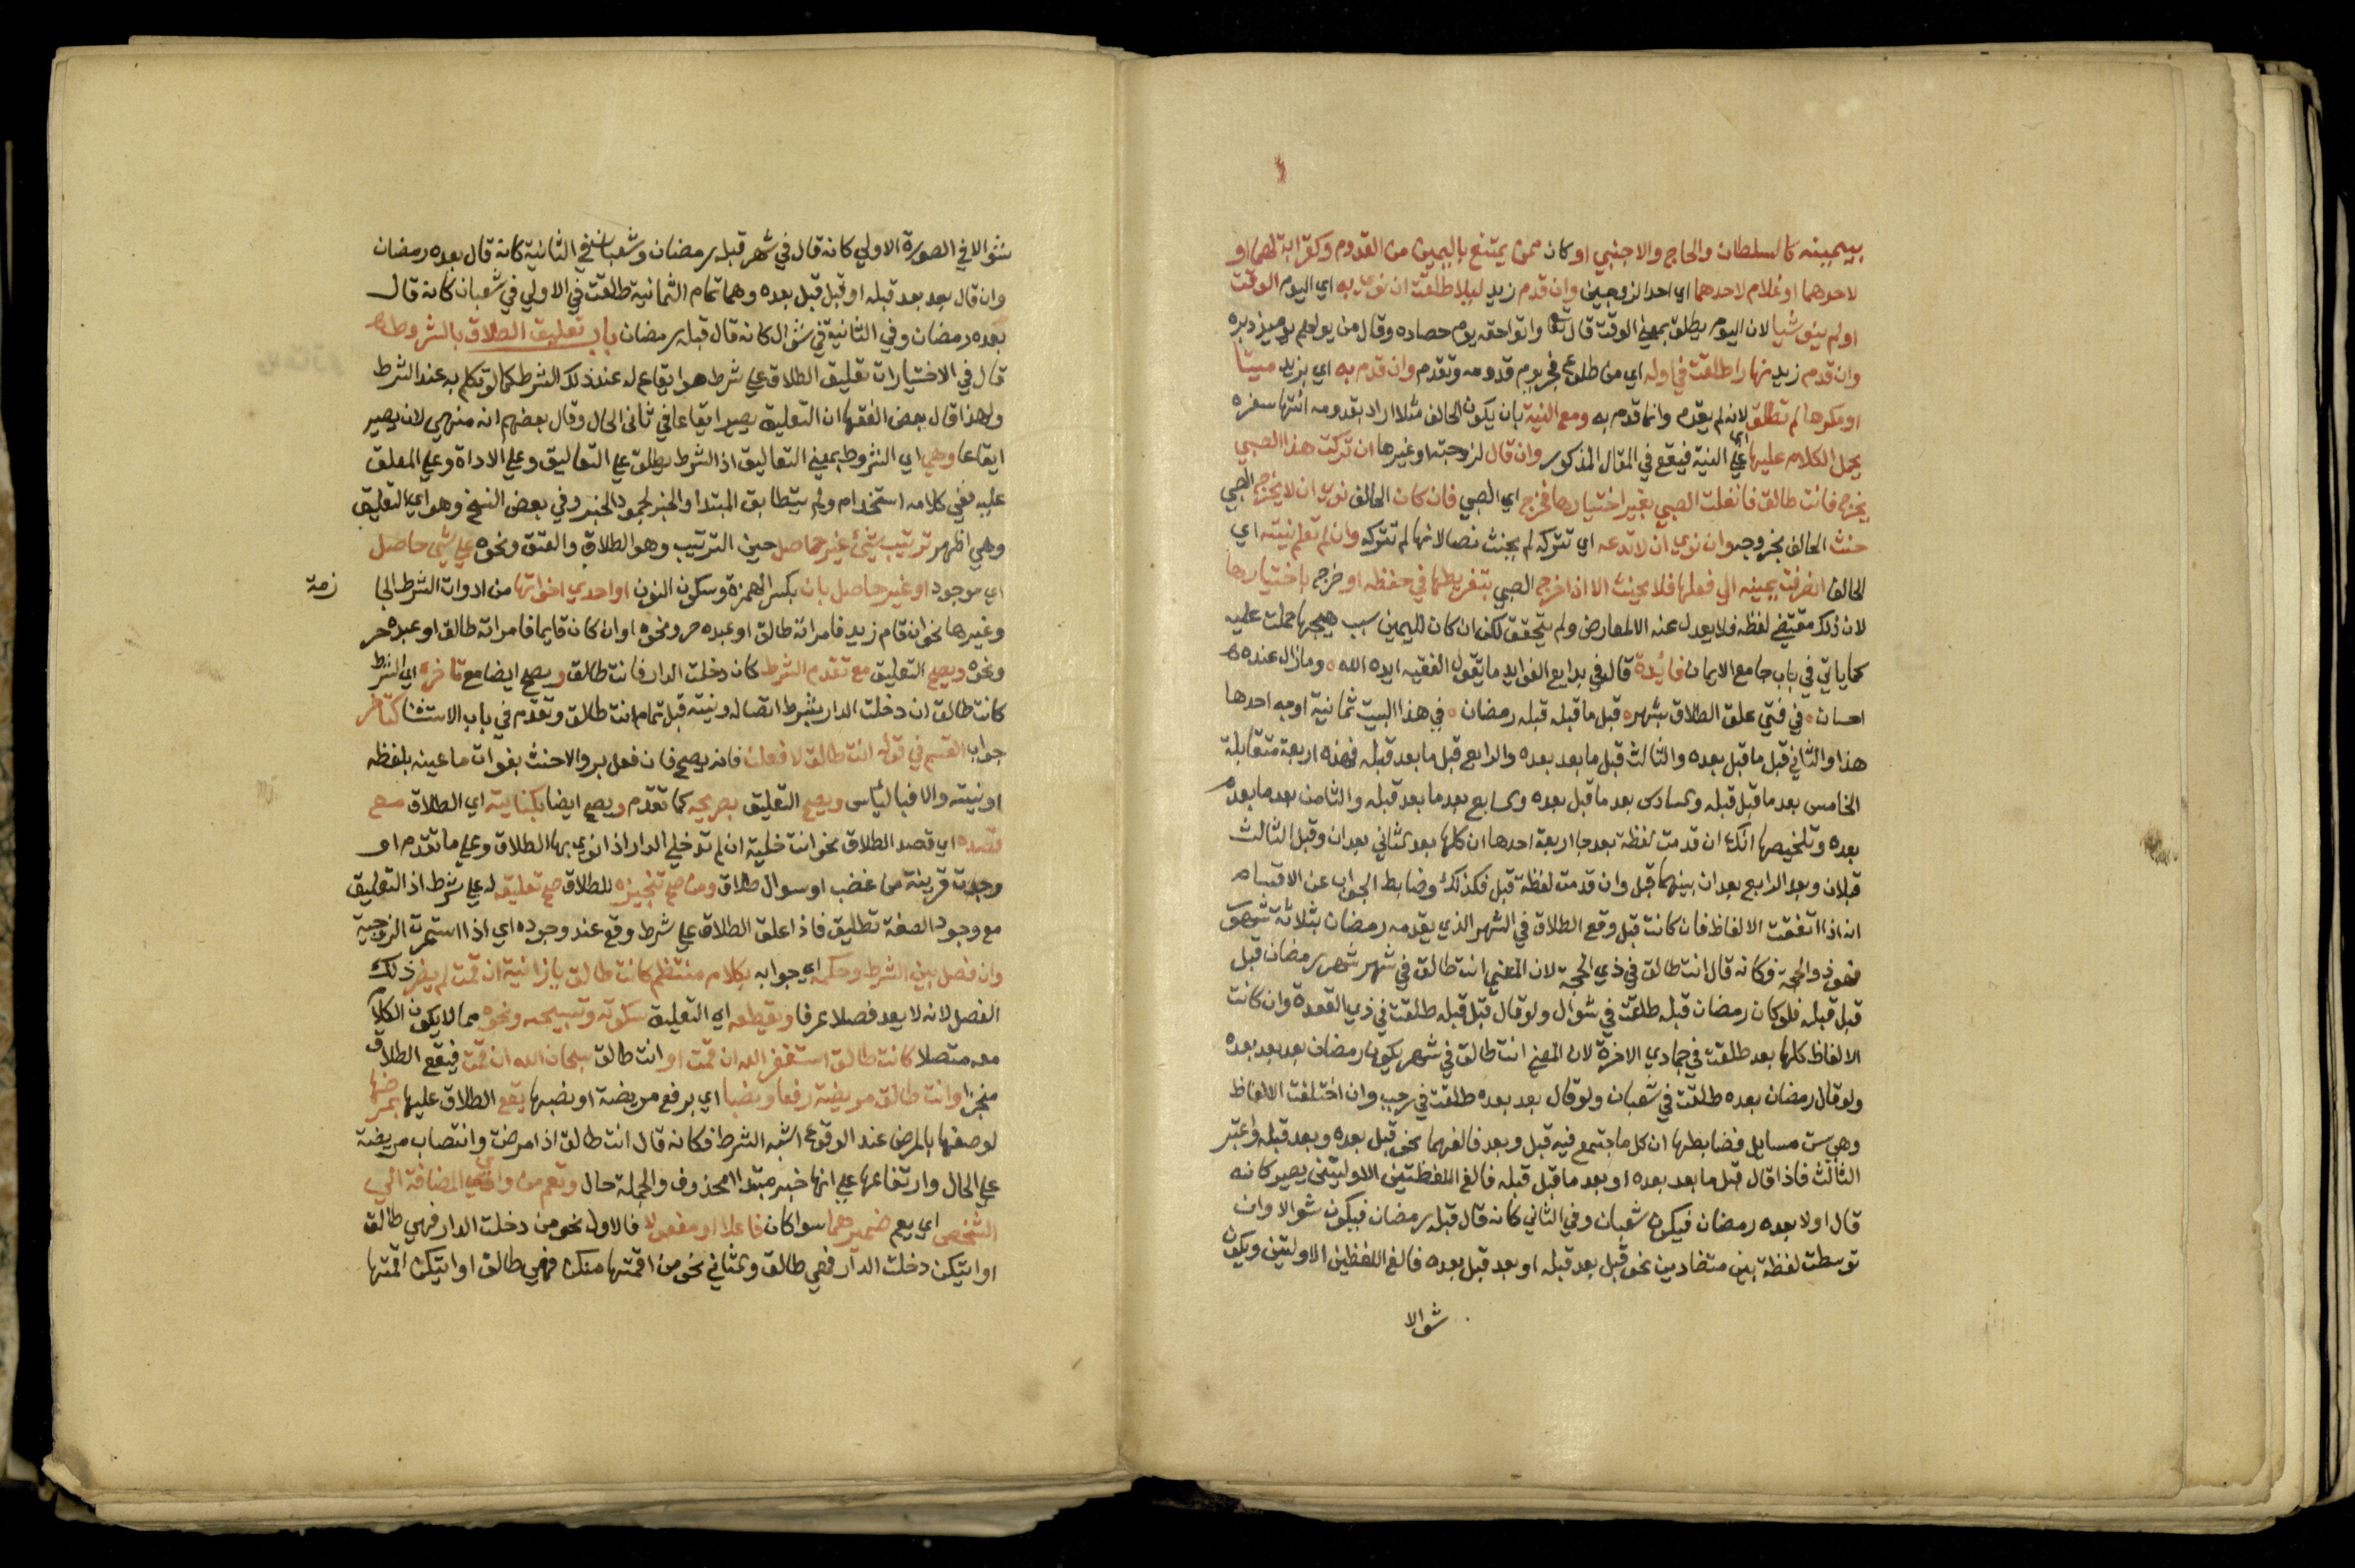 بيمينه كالسلطان والحاج والاجنبي او كان ممن يمتنع باليمين من القدوم وكقرابة لهما او
لاحدهما او غلام لاحدهما اي احد الزوجين وان قدم زيد ليلا طلقت ان نوى به اي اليوم الوقت
او لم ينو شيا لان اليوم يطلق بمعني الوقت قال تعا واتوا حقه يوم حصاده وقال ومن يولهم يوميذ دبره
وان قدم زيد نهارا طلقت في اوله اي من طلوع فجر يوم قدومه وتقدم وان قدم به اي بزيد ميتا
او مكرها لم تطلق لانه لم يقدم وانما قدم به ومع النية بان يكون الحالف مثلا اراد بقدومه انتها سفره
يحمل الكلام عليها اي علي النية فيقع في المقال المذكور وان قال لزوجته او غيرها ان تركت هذا الصبي
يخرج فانت طالق فانفلت الصبي بغير اختيارها فخرج اي الصبي فان كان الحالف نوى ان لا يخرج الصبي
حنث الحالف بخروجه وان نوي ان لا تدعه اي تتركه لم يحنث نصا لانها لم تتركه وان لم تعلم نيته اي
الحالف انصرفت يمينه الي فعلها فلا يحنث الا اذا خرج الصبي بتفريطها في حفظه او خرج باختيارها
لان ذلك مقتضي لفظه فلا يعدل عنه الا لمعارض ولم يتحقق لكن ان كان لليمين سبب هيجها حملت عليه
كما ياتي في باب جامع الايمان فائدة قال في بدايع الفوايد ما يقول الفقيه ايده الله ٥ وما زال عنده
احسان ٥ في فتي علق الطلاق بشهر ٥ قبل ما قبله قبله رمضان ٥ في هذا البيت ثمانية اوجه احدها
هذا والثاني قبل ما قبل بعده والثالث قبل ما بعد بعده والرابع قبل ما بعد قبله فهذه اربعة متقابلة
الخامس بعد ما قبل قبله والسادس بعد ما قبل بعده والسابع بعد ما بعد قبله والثامن بعد ما بعد
بعده وتلخيصها انك ان قدمت لفظة بعد جا اربعة احدها ان كلها بعد الثاني بعدان وقبل الثالث
قبلان وبعد الرابع بعدان بينهما قبل وان قدمت لفظة قبل فكذلك وضابط الجواب عن الاقسام
انه اذا اتفقت الالفاظ فان كانت قبل وقع الطلاق في الشهر الذي يقدمه رمضان بثلاثة شهور
فهو ذو الحجة فكانه قال انت طالق في ذي الحجة لان المعني انت طالق في شهر شهر رمضان قبل
قبل قبله فلو كان رمضان قبله طلقت في شوال ولو قال قبل قبله طلقت في ذي القعدة وان كانت
الالفاظ كلها بعد طلقت في جمادي الاخرة لان المعني انت طالق في شهر يكون رمضان بعد بعد بعده
ولو قال رمضان بعده طلقت في شعبان ولو قال بعد بعده طلقت في رجب وان اختلفت الالفاظ
وهي ست مسايل فضابطها ان كل ما اجتمع فيه قبل وبعد فالغهما نحو قبل بعده وبعد قبله واعتبر
الثالث فاذا قال قبل ما بعد بعده او بعد ما قبل قبله فالغ اللفظتين الاوليتين يصير كانه
قال اولا بعده رمضان فيكون شعبان وفي الثاني كانه قال قبله رمضان فيكون شوالا وان
توسطت لفظة بين متضادين نحو قبل بعد قبله او بعد قبل بعده فالغ اللفظين الاوليتين ويكون
شوالا
شوالا في الصورة الاولي كانه قال في شهر قبله رمضان وشعبان في الثانية كانه قال بعده رمضان
وان قال بعد بعد قبله او قبل قبل بعده وهما تمام الثمانية طلقت في الاولي في شعبان كانه قال
بعده رمضان وفي الثانية في شوال كانه قال قبله رمضان باب تعليق الطلاق بالشروط
قال في الاختيارات تعليق الطلاق علي شرط هو ايقاع له عند ذلك الشرط كما لو تكلم به عند الشرط
ولهذا قال بعض الفقها ان التعليق يصير ايقاعا في ثاني الحال وقال بعضهم انه متهيي لان يصير
ايقاعا وهي اي الشروط بمعني التعاليق اذ الشرط يطلق علي التعاليق وعلي الاداة وعلي المعلق
عليه ففي كلامه استخدام ولم يتطابق المبتدا والخبر لجمود الخبر وفي بعض النسخ وهو اي التعليق
وهي اظهر ترتيب شيئ غير حاصل حين الترتيب وهو الطلاق والعتق ونحوه علي شي حاصل
اي موجود او غير حاصل بان بكسر الهمزة وسكون النون او احدي اخواتها من ادوات الشرط الجا
زمة
وغيرها نحو ان قام زيد فامراته طالق او عبده حر ونحوه او ان كان قايما فامراته طالق او عبده حر
ونحوه ويصح التعليق مع تقدم الشرط كان دخلت الدار فانت طالق ويصح ايضا مع تاخره اي الشرط
كانت طالق ان دخلت الدار بشرط اتصاله ونيته قبل تمام انت طالق وتقدم في باب الاستثنا كتاخر
جواب القسم في قوله انت طالق لافعلن فانه يصح فان فعل بر والا حنث بفوات ما عينه بلفظه
او نيته والا فبالياس ويصح التعليق بصريحه كما تقدم ويصح ايضا بكنايته اي الطلاق مع
قصده اي قصد الطلاق نحو انت خلية ان لم تدخلي الدار اذا نوي بها الطلاق وعلي ما تقدم او
وجدت قرينة من غضب او سوال طلاق ومن صح تنجيزه للطلاق صح تعليقه له علي شرط اذ التعليق
مع وجود الصفة تطليق فاذا علق الطلاق علي شرط وقع عند وجوده اي اذا استمرت الزوجية
وان فصل بين الشرط وحكمه اي جوابه بكلام منتظم كانت طالق يا زانية ان قمت لم يضر ذلك
الفصل لانه لا يعد فصلا عرفا ويقطعه اي التعليق سكوته وتسبيحه ونحوه مما لا يكون الكلام
معه متصلا كانت طالق استغفر الله ان قمت او انت طالق سبحان الله ان قمت فيقع الطلاق
منجزا وانت طالق مريضة رفعا ونصبا اي برفع مريضة او نصبها يقع الطلاق عليها بمرضها
لوصفها بالمرض عند الوقوع اشبه الشرط فكانه قال انت طالق اذا مرضت وانتصاب مريضة
علي الحال وارتفاعها علي انها خبر مبتدا محذوف والجملة حال وتعم من واي المضافة الي
الشخص اي يعم ضميرهما سوا كان فاعلا او مفعولا فالاول نحو من دخلت الدار فهي طالق
او ايتكن دخلت الدار فهي طالق والثاني نحو من اقمتها منكن فهي طالق او ايتكن اقمتها